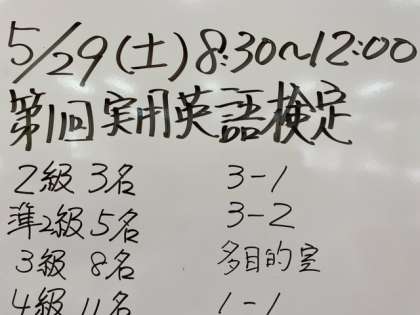 5/29(土)8:30〜12:00
第1回実用英語検定
2級 3名 3-1
準2級 5名 3-2
3級 8名 多目的室
4級 11名 1-1